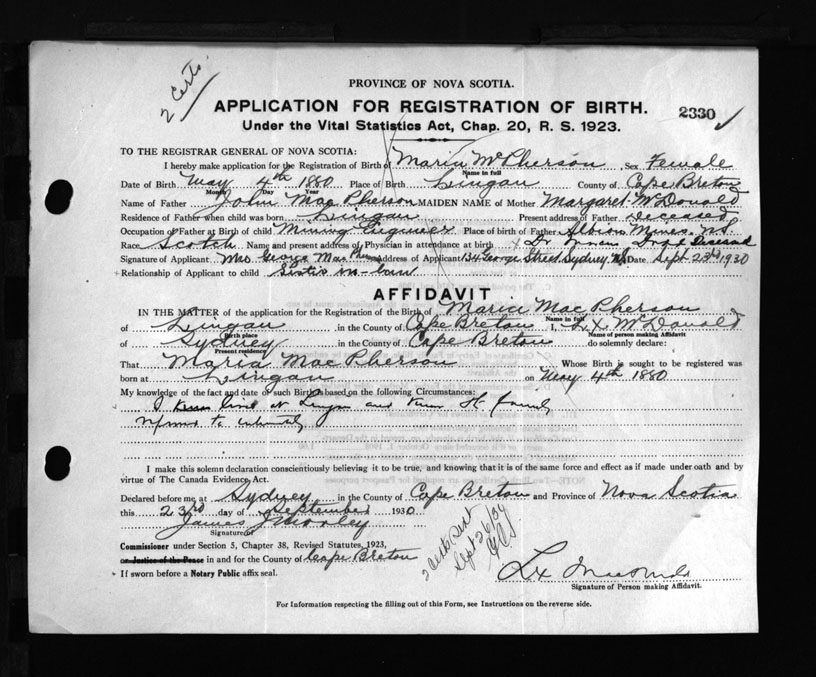 2 Certs.
PROVINCE OF NOVA SCOTIA.
APPLICATION FOR REGISTRATION OF BIRTH.
2330
Under the Vital Statistics Act, Chap. 20, R. S. 1923.
TO THE REGISTRAR GENERAL OF NOVA SCOTIA:
I hereby make application for the Registration of Birth of Maria McPherson Sex Female
Name in full
Date of Birth May 4th 1880 Place of Birth Lingan County of Cape Breton
Month Day Year
Name of Father John MacPherson MAIDEN NAME of Mother Margaret McDonald
Residence of Father when child was born Lingan Present address of Father Deceased
Occupation of Father at Birth of child Mining Engineer Place of birth of Father Albion Mines, N.S.
Race Scotch Name and present address of Physician in attendance at birth Dr Deceased
Signature of Applicant Mrs George MacPherson Address of Applicant George Street, Sydney N.S. Date Sept 23rd 1930
Relationship of Applicant to child Sister in-law
AFFIDAVIT
IN THE MATTER of the application for the Registration of the Birth of Maria MacPherson
Name in full
of Lingan in the County of Cape Breton I, McDonald
Birth place Name of person making Affidavit
of Sydney in the County of Cape Breton do solemnly declare:
Present residence
That Maria MacPherson Whose Birth is sought to be registered was
born at Lingan on May 4th 1880
My knowledge of the fact and date of such Birth is based on the following Circumstances:
I lived at Lingan and family
to intimately
I make this solemn declaration conscientiously believing it to be true, and knowing that it is of the same force and effect as if made under oath and by
virtue of The Canada Evidence Act.
Declared before me at Sydney in the County of Cape Breton and Province of Nova Scotia
this 23rd day of September 1930
James
Signature of
Commissioner under Section 5, Chapter 38, Revised Statutes, 1923,
or Justice of the Peace in and for the County of Cape Breton
If sworn before a Notary Public affix seal.
2 Certs. Sent
Sept 26/30
Signature of Person making Affidavit.
For Information respecting the filling out of this Form, see Instructions on the reverse side.